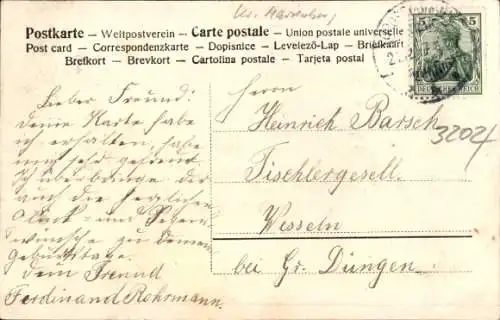 Postkarte – Weltpostverein – Carte postale – Union postale universelle
Post card – Correspondenzkarte – Dopisnice – Levelező-Lap – Briefkaart
Brefkort – Brevkort – Cartolina postale – Tarjeta postal
5 5
DEUTSCHES REICH
32024
Lieber Freund!
Deine Karte habe
ich erhalten, habe
mich sehr gefreut
Ich überbringe dir
auch die herzlichen
Glück- und Segens
wünsche zu Deinem
Geburtstage.
Dein Freund
Ferdinand Rehrmann.
Heinrich Barsch
Tischlergesell.
Wesseln
bei Gr. Düngen